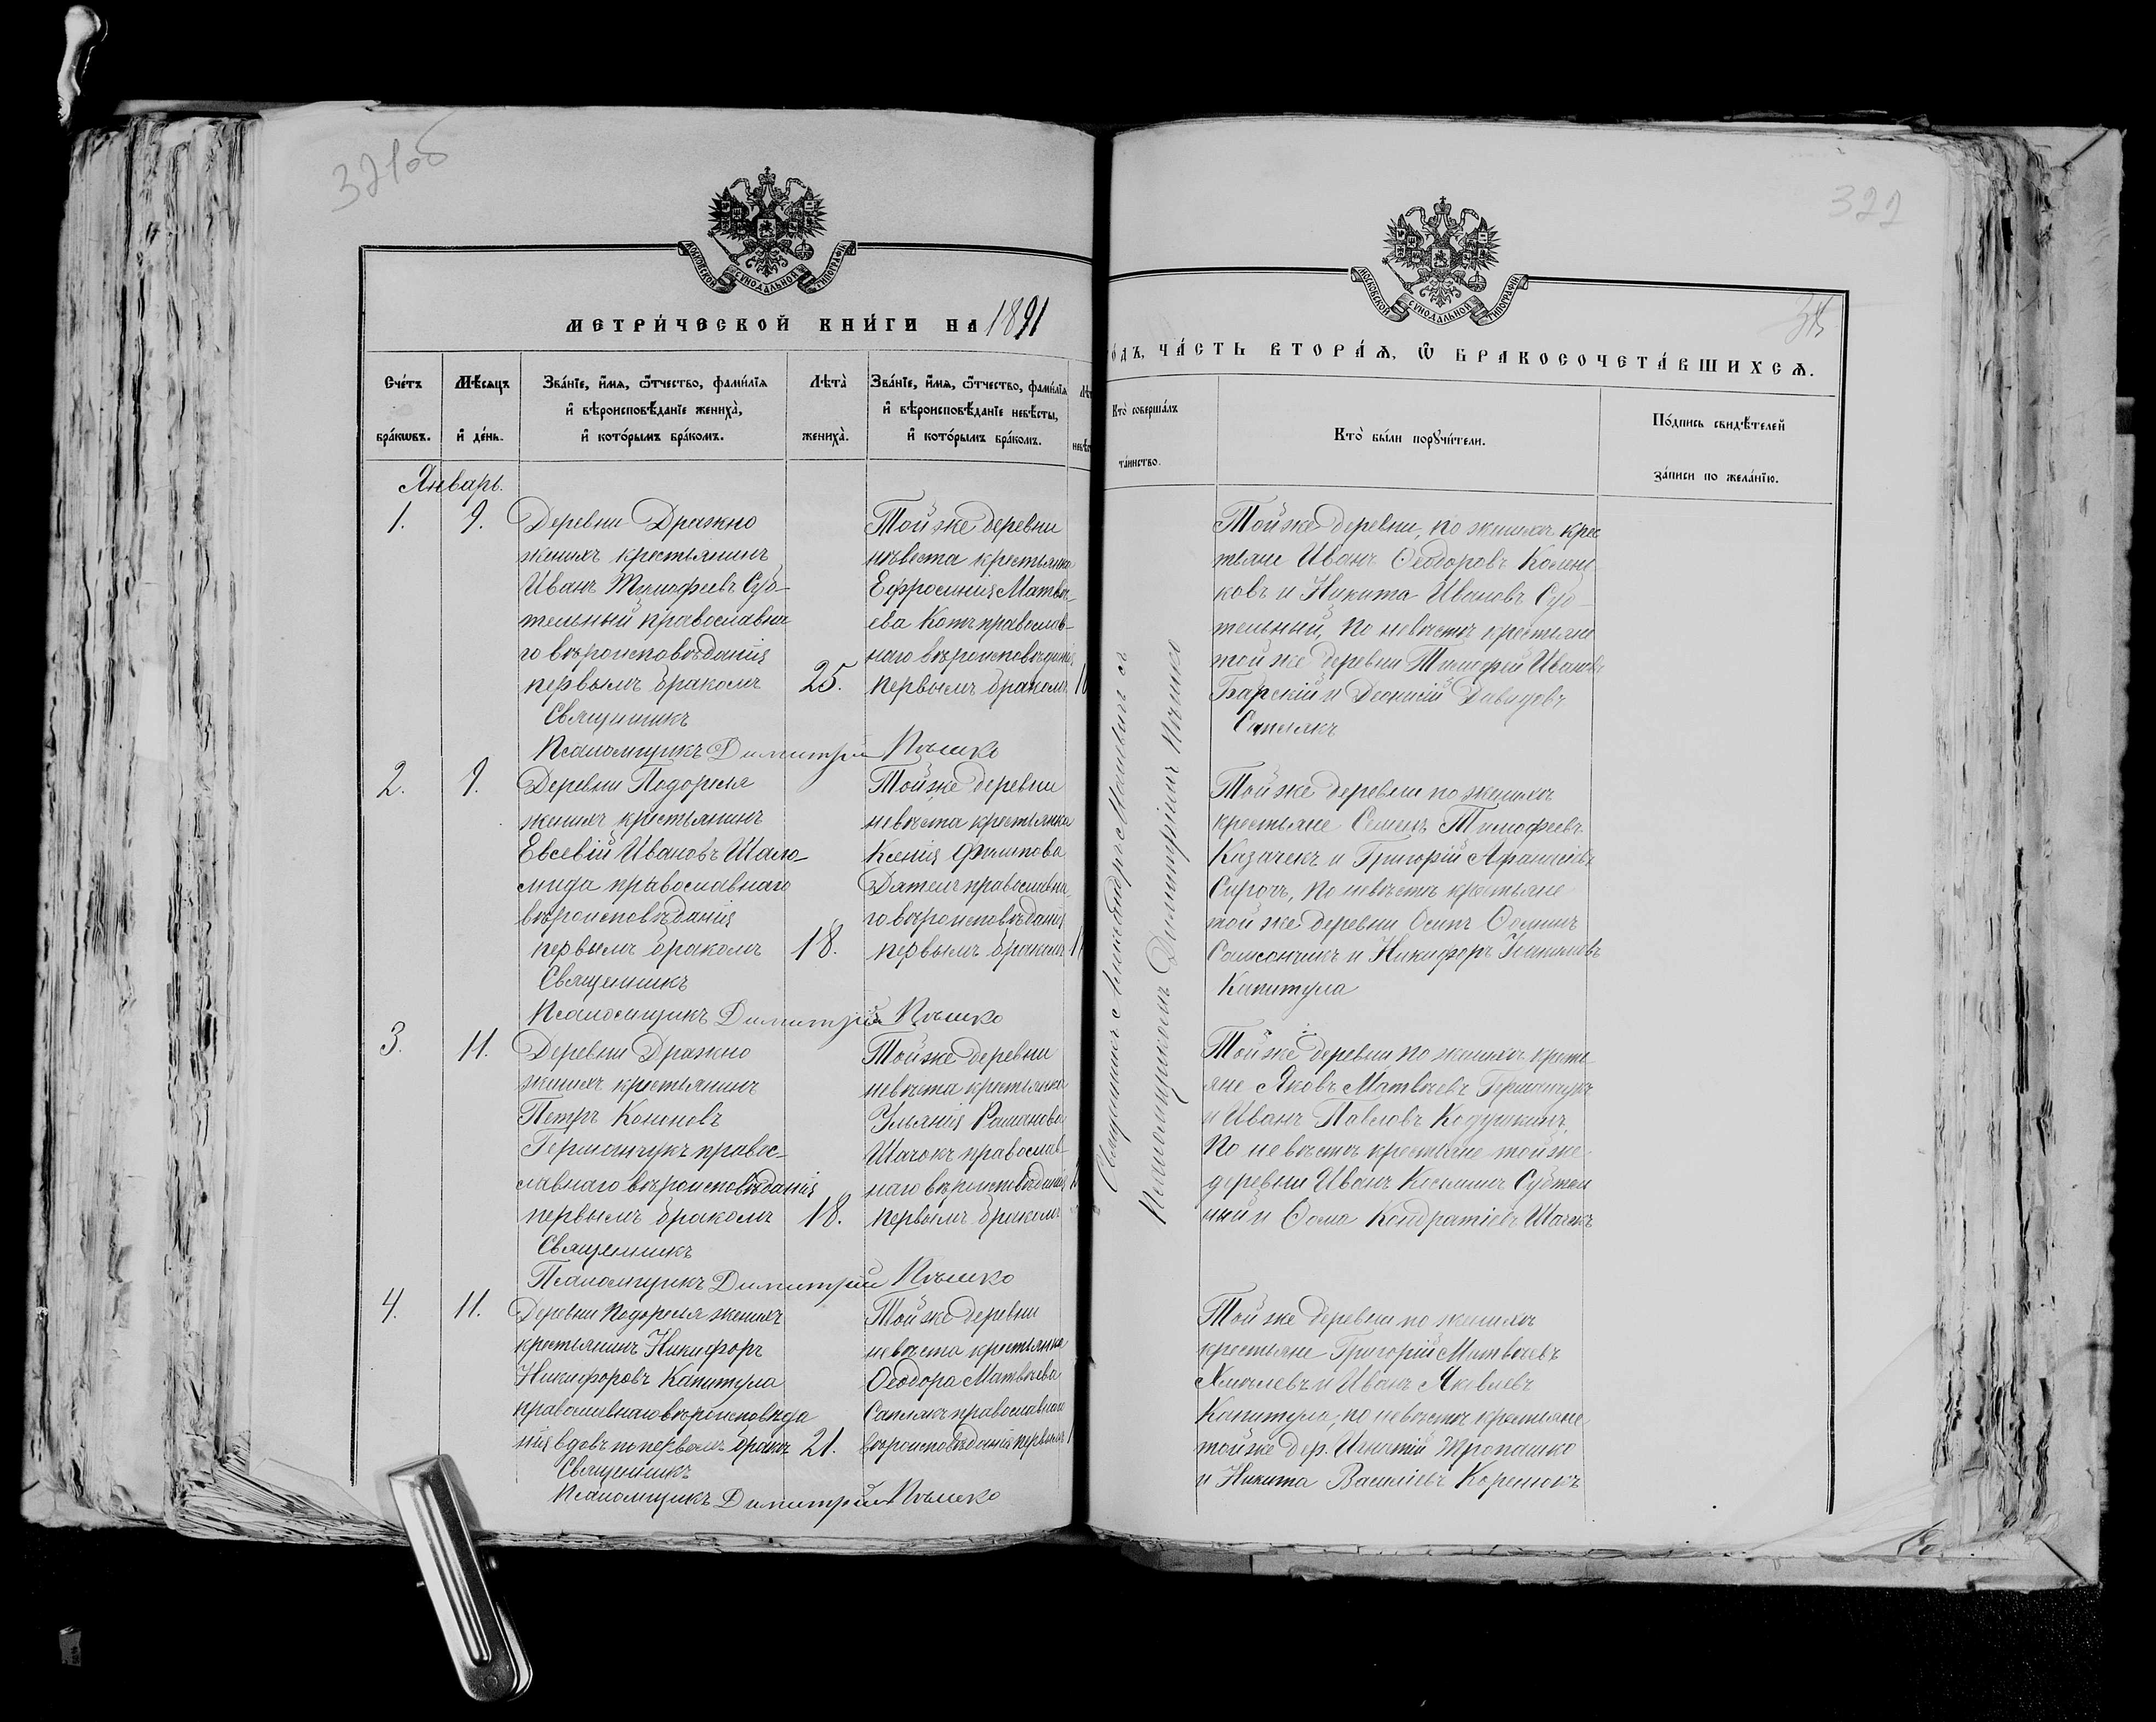 321об
322
МОСКОВСКОЙ СѴНОДАЛЬНОЙ ТИПОГРАФІИ
МЕТРИ́ЧЕСКОЙ КНИ́ГИ НА 1891
Сче́тъ бра́кωвъ.
Мѣ́сяцъ и҆ де́нь.
Зва́нїе, и҆́мя, ѻ҆́тчество, фами́лїя и҆ вѣроисповѣ́данїе жениха̀, и҆ кото́рымъ бра́комъ.
Лѣта̀ жениха̀.
Зва́нїе, и҆́мя, ѻ҆́тчество, фами́лїя и҆ вѣроисповѣ́данїе невѣ́сты, и҆ кото́рымъ бра́комъ.
Январь.
1.
9.
Деревни Дражно
женихъ крестьянинъ
Иванъ Тимофеевъ Суб-
тельный православна
го вѣроисповѣданія
первымъ бракомъ
25.
Тойже деревни
невѣста крестьянка
Ефросинія Матвѣ-
ева Котъ православ-
наго вѣроисповѣданія
первымъ бракомъ
Священникъ
Псаломщикъ Димитрій Пѣшко
2.
9.
Деревни Подоресья
женихъ крестьянинъ
Евсевій Ивановъ Шала
мида православнаго
вѣроисповѣданія
первымъ бракомъ
18.
Тойже деревни
невѣста крестьянка
Ксенія Филипова
Дятелъ православна
го вѣроисповѣданія
первымъ бракомъ
Священникъ
Псаломщикъ Димитрій Пѣшко
3.
11.
Деревни Дражно
женихъ крестьянинъ
Петръ Кононовъ
Германчукъ правос-
лавнаго вѣроисповѣданія
первымъ бракомъ
18.
Тойже деревни
невѣста крестьянка
Ульянія Романова
Шачокъ православ-
наго вѣроисповѣданія
первымъ бракомъ
Священникъ
Псаломщикъ Димитрій Пѣшко
4.
11.
Деревни Подоресья женихъ
крестьянинъ Никифоръ
Никифоровъ Капитула
православнаго вѣроисповѣда
нія вдовъ по первомъ бракѣ
21.
Тойже деревни
невѣста крестьянка
Ѳеодора Матвѣева
Саплякъ православнаго
вѣроисповѣданія первымъ
Священникъ
Псаломщикъ Димитрій Пѣшко
МОСКОВСКОЙ СѴНОДАЛЬНОЙ ТИПОГРАФІИ
О́ДЪ, ЧА́СТЬ ВТОРА́Ѧ, Ѽ БРАКОСОЧЕТА́ВШИХСѦ.
Кто̀ соверша́лъ та́инство.
Кто̀ бы́ли порꙋчи́тели.
По́дпись свидѣ́телей за́писи по жела́нїю.
Священникъ Александръ съ
Псаломщикомъ Димитріемъ Пѣшко
Тойже деревни, по женихѣ крес
тьяне Иванъ Ѳеодоровъ
ковъ и Никита Ивановъ Суб-
тельный, по невѣстѣ крестьяне
той же деревни Тимофей Ивановъ
Барскій и Діонисій Давидовъ
Саплякъ
Тойже деревни по женихѣ
крестьяне Семенъ Тимофеевъ
Казачекъ и Григорій Афанасіевъ
по невѣстѣ крестьяне
той же деревни Осипъ Ѳоминъ
Самсончикъ и Никифоръ
Капитула
Тойже деревни по женихѣ кресть
яне Яковъ Матвѣевъ Германчукъ
и Иванъ Павловъ
по невѣстѣ крестьяне тойже
деревни Иванъ Косьминъ Субтел
ный и Ѳома Кондратіевъ Шачокъ
Тойже деревни по женихѣ
крестьяне Григорій Матвѣевъ
и Иванъ Яковлевъ
Капитула; по невѣстѣ крестьяне
тойже дер. Игнатій Тропашко
и Никита Василіевъ Коренюкъ